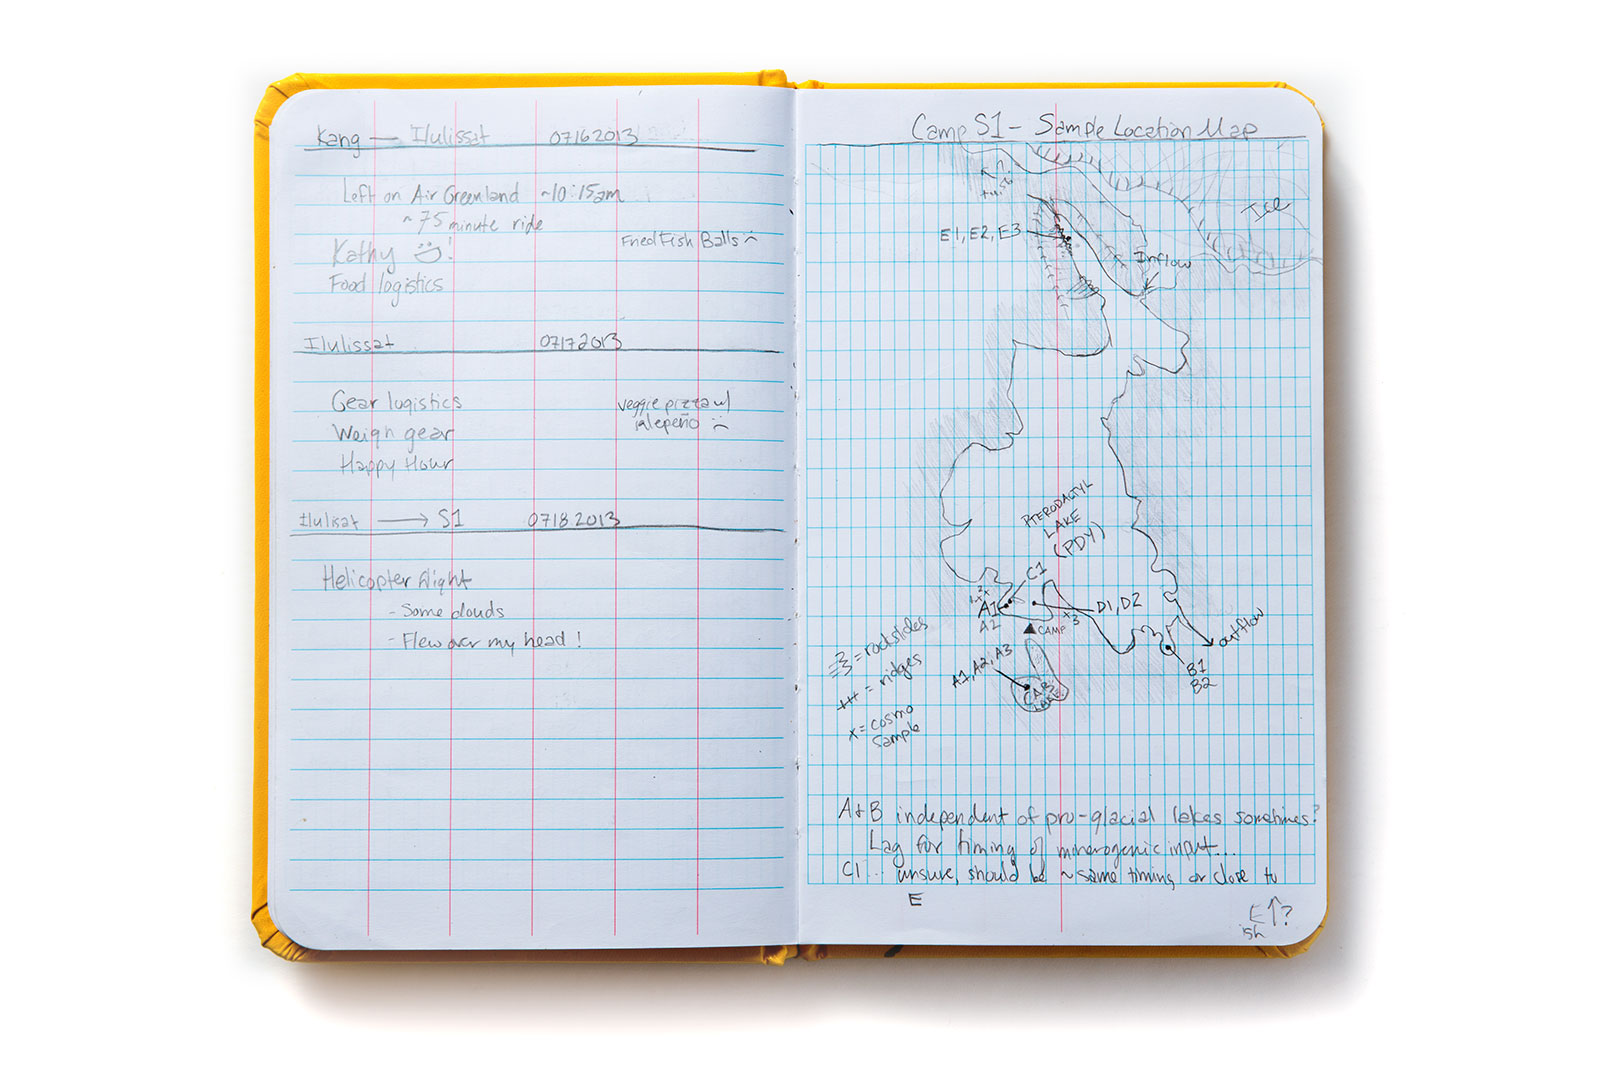 Kang — Ilulissat 07162013
Left on Air Greenland ~10:15am
~75 minute ride
Kathy !
Fried Fish Balls
Food logistics
Ilulissat 07172013
Gear logistics
veggie pizza w/
jalepeño
Weigh gear
Happy Hour
Ilulisat → S1 0718.2013
Helicopter flight
- Some clouds
- Flew over my head!
Camp S1 - Sample Location Map
Ice
E1, E2, E3
Inflow
PTERODACTYL
LAKE
(PDY)
C1
A1
A2
D1, D2
x 3
CAMP
outflow
B1
B2
A1, A2, A3
LAKE
= rockslides
+++ = ridges
x = cosmo
sample
A+B independent of pro-glacial lakes sometimes?
Lag for timing of minerogenic input...
C1... unsure, should be ~same timing or close to
E
E↑?
ish